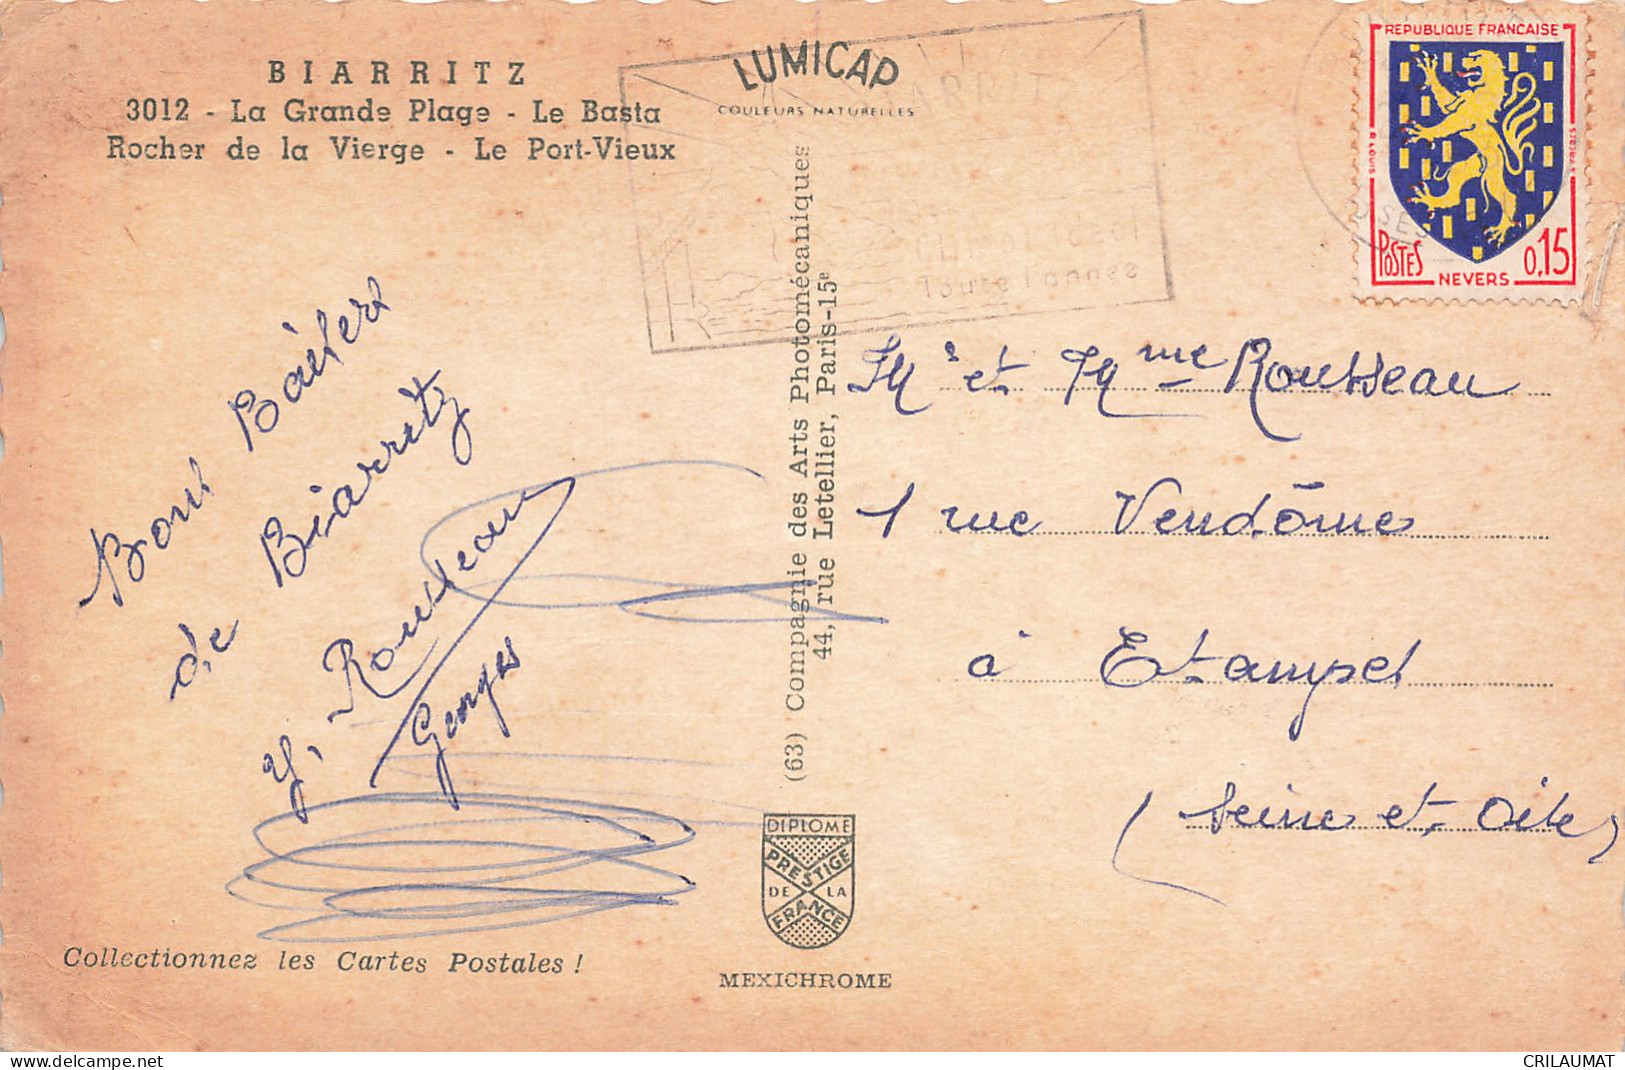 BIARRITZ
3012 - La Grande Plage - Le Basta
Rocher de la Vierge - Le Port-Vieux
LUMICAP
COULEURS NATURELLES
REPUBLIQUE FRANCAISE
POSTES
0,15
NEVERS
Toute l'année
Bons Baisers
de Biarritz
Y. Rousseau
Georges
(63) Compagnie des Arts Photomécaniques
44, rue Letellier, Paris-15e
Mr et Mme Rousseau
1 rue Vendôme
à Etampes
(Seine et Oise)
DIPLOME
PRESTIGE
DE LA
FRANCE
Collectionnez les Cartes Postales !
MEXICHROME
https://www.delcampe.net
CRILAUMAT